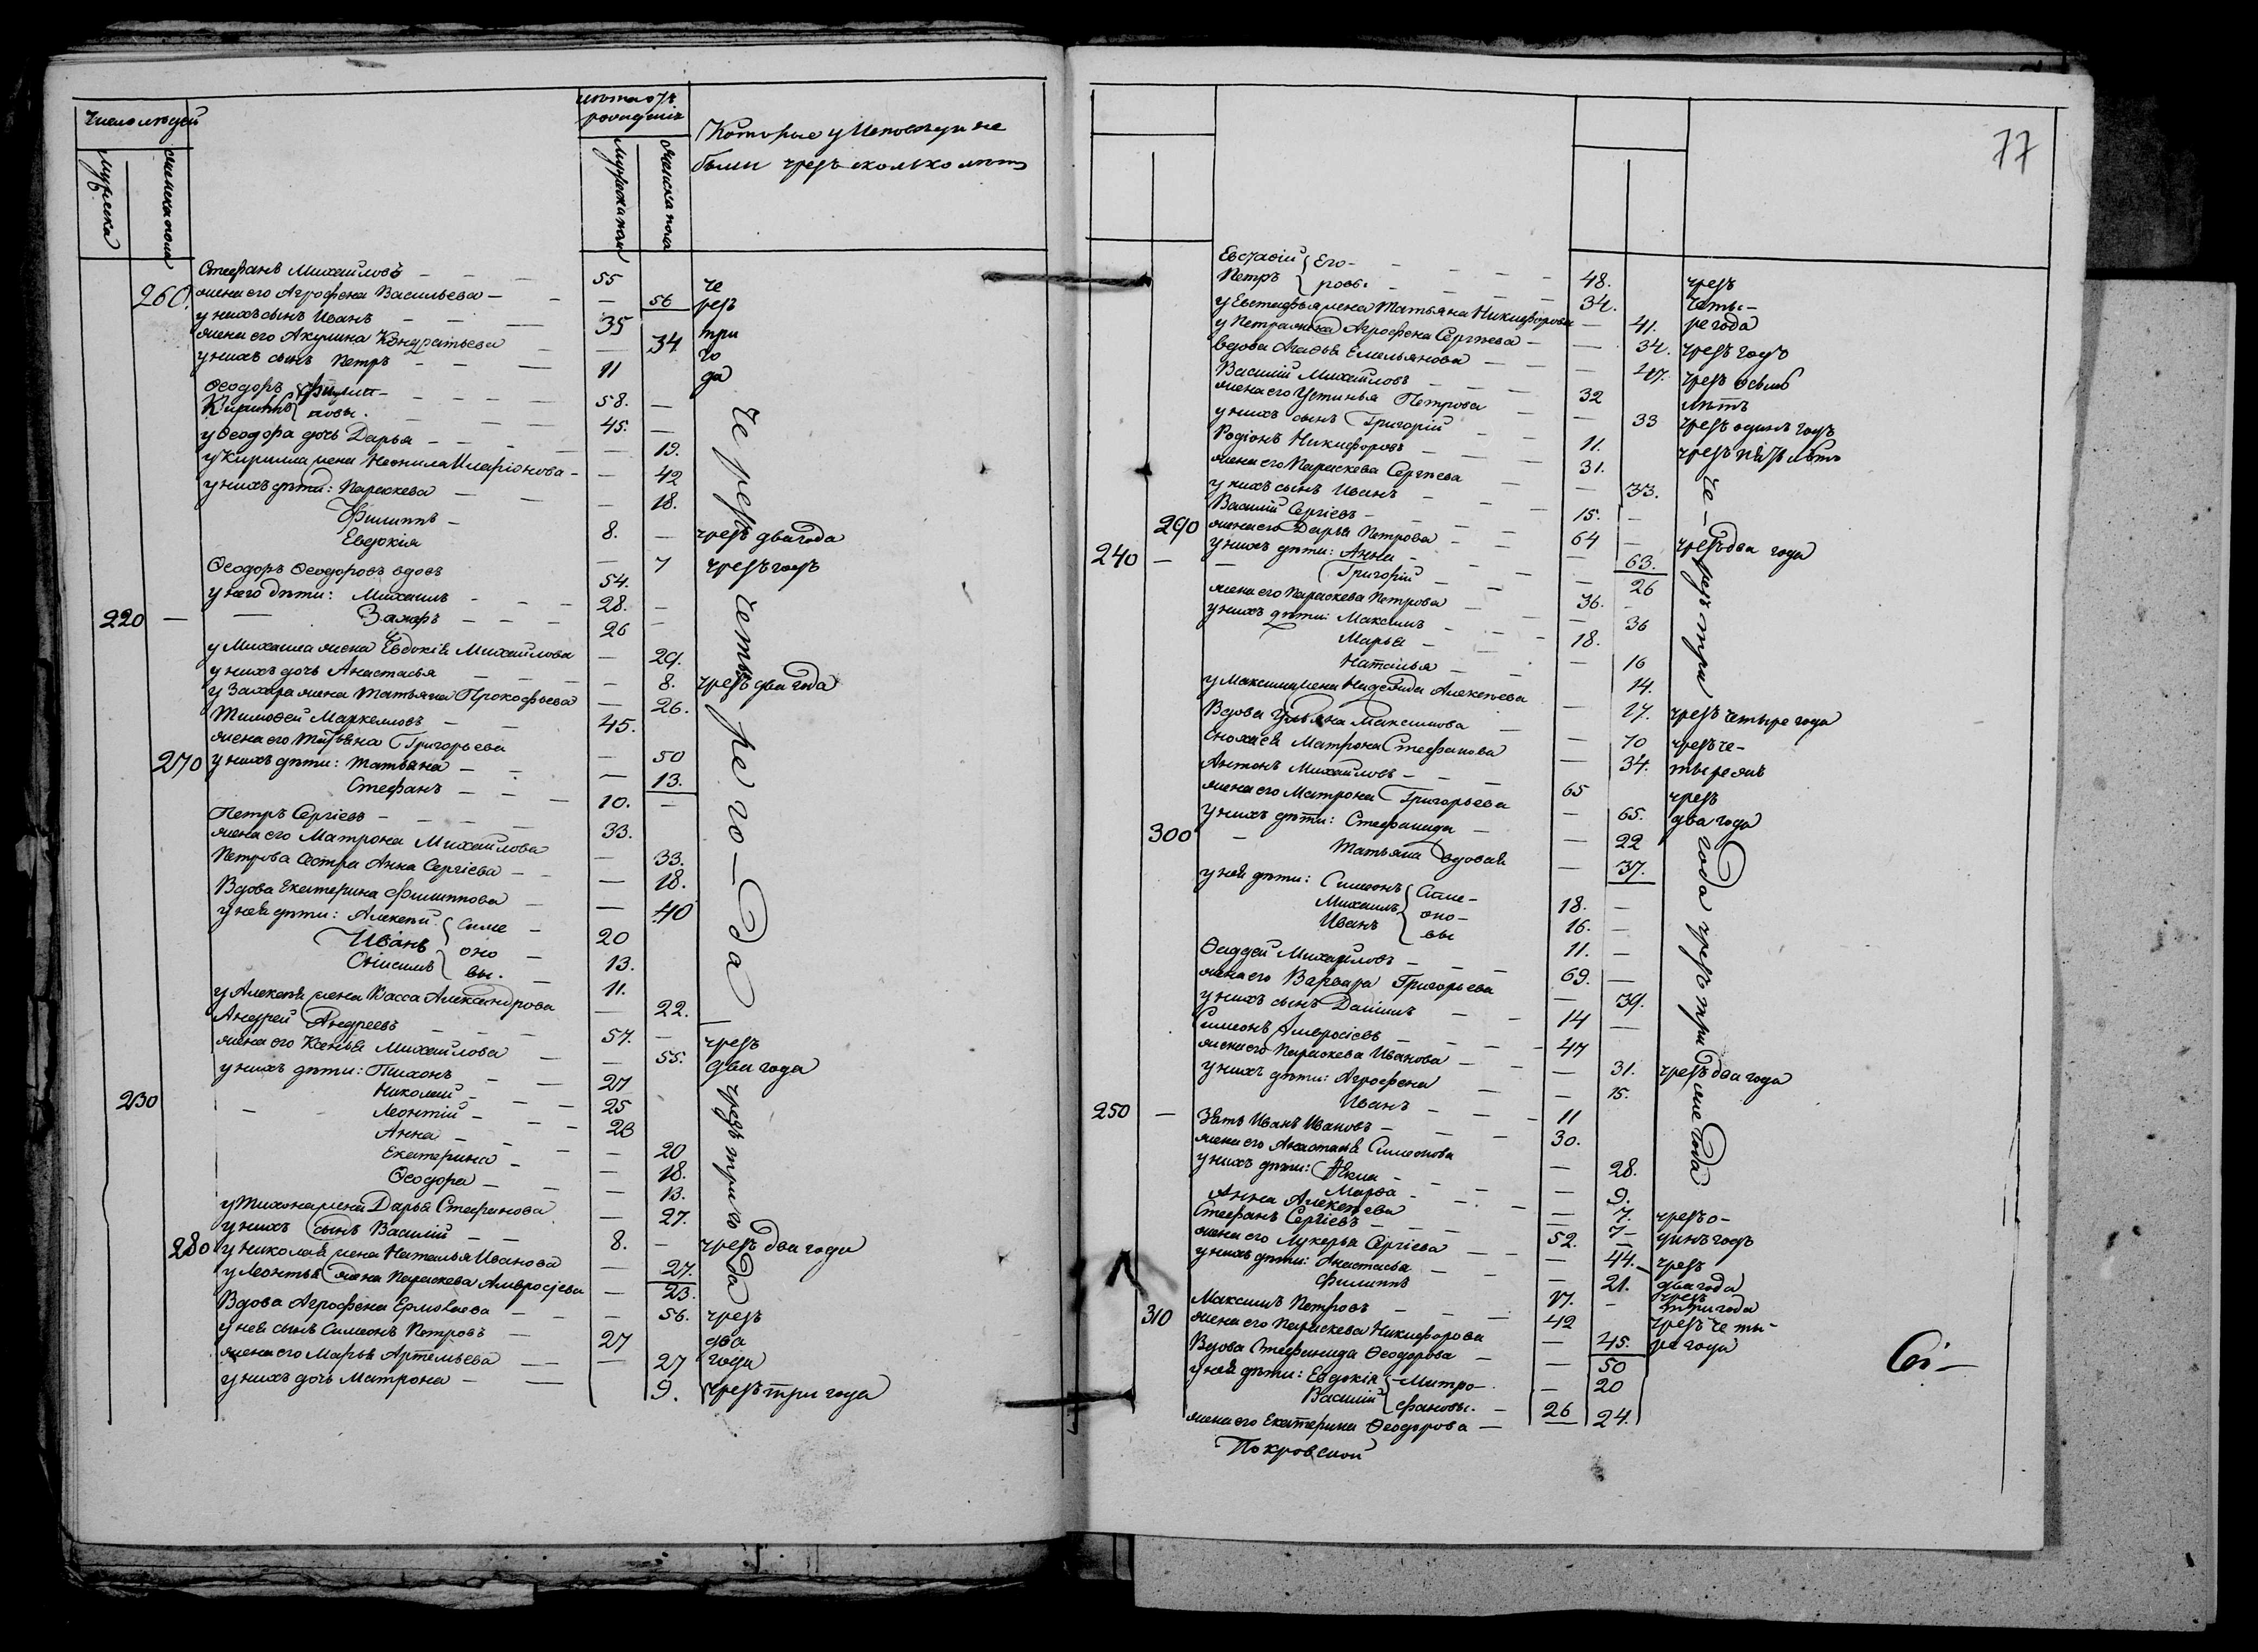 Число людей
мужеска
женска пола
лѣта отъ рожденія
мужска пола
женска пола
Которые у Исповѣди не
были чрезъ сколько лѣтъ
Стефанъ Михайловъ - - - 55 че
260 жена его Агрофена Васильева - - - 56 резъ
у нихъ сынъ Иванъ - - - 35 три
жена его Акулина Кондратьева - - 34 го
у нихъ сынъ Петръ - - - 11 да
Ѳеодоръ { Филип- - - - 58. -
Кириллъ { повы. - - - 45. -
у Ѳеодора дочь Дарья - - - - 19.
у Кирилла жена Неонила Иларіонова - - 42
у нихъ дѣти: Параскева - - - 18.
Филиппъ - 8. - чрезъ два года
Евдокія - 7 чрезъ годъ
Ѳеодоръ Ѳеодоровъ вдовъ 54.
у него дѣти: Михаилъ - - - 28. -
220 - - Захаръ - - - 26 -
у Михаила жена Евдокія Михайлова - 29.
у нихъ дочь Анастасья - - - - 8. чрезъ два года
у Захара жена Татьяна Прокофьева - 26.
Тимоѳей Маркелловъ - - 45.
жена его Татьяна Григорьева - 50
270 у нихъ дѣти: Татьяна - - - 13.
Стефанъ - - - 10. -
Петръ Сергіевъ - - - - 33.
жена его Матрона Михайлова - 33.
Петрова сестра Анна Сергіева - - - 18.
Вдова Екатерина Филиппова - - 40
у нея дѣти: Алексѣй { Симе - 20
Иванъ { оно - 13.
Онисимъ { вы. - 11.
у Алексѣя жена Васса Александрова - 22.
Андрей Андреевъ - - - 57. - чрезъ
жена его Ксенья Михайлова - - 55. два года
у нихъ дѣти: Тихонъ - - 27
Николай - - - 25
230 - Леонтій - - - 23
Анна - - - - 20
Екатерина - - 18.
Ѳеодора - - - 13.
у Тихона жена Дарья Стефанова - 27.
у нихъ сынъ Василій - - 8. - чрезъ два года
280 у Николая жена Наталья Иванова - 27.
у Леонтья жена Параскева Амвросіева - 23.
Вдова Агрофена Ермолаева - - 56. чрезъ
у нея сынъ Симеонъ Петровъ - 27 два
жена его Марья Артемьева - - 27 года
у нихъ дочь Матрона - - 9. чрезъ три года
че резъ четы ре го - да
чрезъ три года
77
Евстафій { Его- - - - - - 48. чрезъ
Петръ { ровы - - - - 34. четы-
у Евстафья жена Татьяна Никифорова - 41. ре года
у Петра жена Агрофена Сергѣева - - 34. чрезъ годъ
вдова Агафья Емельянова - - - 47. чрезъ осьмь
Василій Михайловъ - - - 32 лѣтъ
жена его Устинья Петрова - - 33 чрезъ одинъ годъ
у нихъ сынъ Григорій - - 11. чрезъ пять лѣтъ
Родіонъ Никифоровъ - - - 31.
жена его Параскева Сергѣева - - 33.
у нихъ сынъ Иванъ - - - 15. -
Василій Сергіевъ - - - - 64 - чрезъ два года
290 жена его Дарья Петрова - - - 63.
240 - - у нихъ дѣти: Анна - - - - 26
Григорій - - - 36. -
жена его Параскева Петрова - - 36
у нихъ дѣти: Максимъ - - - 18.
Марья - - - 16
Наталья - - - 14.
у Максима жена Надежда Алексѣева - 17. чрезъ четыре года
Вдова Ульяна Максимова - - 70 чрезъ че-
Сноха ея Матрона Стефанова - 34. тыре лѣт
Антонъ Михайловъ - - - 65 чрезъ
жена его Матрона Григорьева - 65. два года
у нихъ дѣти: Стефанида - - 22
300 - Татьяна вдовая - 37.
у нея дѣти: Симеонъ { Симе- 18. -
Михаилъ { оно- 16. -
Иванъ { вы 11. -
Ѳаддей Михайловъ - - - 69. -
жена его Варвара Григорьева - 39.
у нихъ сынъ Даніилъ - - 14 -
Симеонъ Амвросіевъ - - - - 47
жена его Параскева Иванова - - 31. чрезъ два года
у нихъ дѣти: Агрофена - - - 15.
250 - Иванъ - - - 11
Зять Иванъ Ивановъ - - - 30.
жена его Анастасія Симеонова - 28.
у нихъ дѣти: Ѳекла - - - - 9.
Марѳа - - - - 7. чрезъ о-
Анна Алексѣева - 7 - динъ годъ
Стефанъ Сергіевъ - - - 52. -
жена его Лукерья Сергіева - - - 44. - чрезъ
у нихъ дѣти: Анастасья - - - 21. два года
Филиппъ 17. - чрезъ три года
Максимъ Петровъ - - - 42 чрезъ четы-
310 жена его Параскева Никифорова - 45. ре года
Вдова Стефанида Ѳеодорова - - 50
у нея дѣти: Евдокія { Митро- - 20
Василій { фановы. - 26
жена его Екатерина Ѳеодорова - - 24.
Покровской
че - резъ три года чрезъ три же года